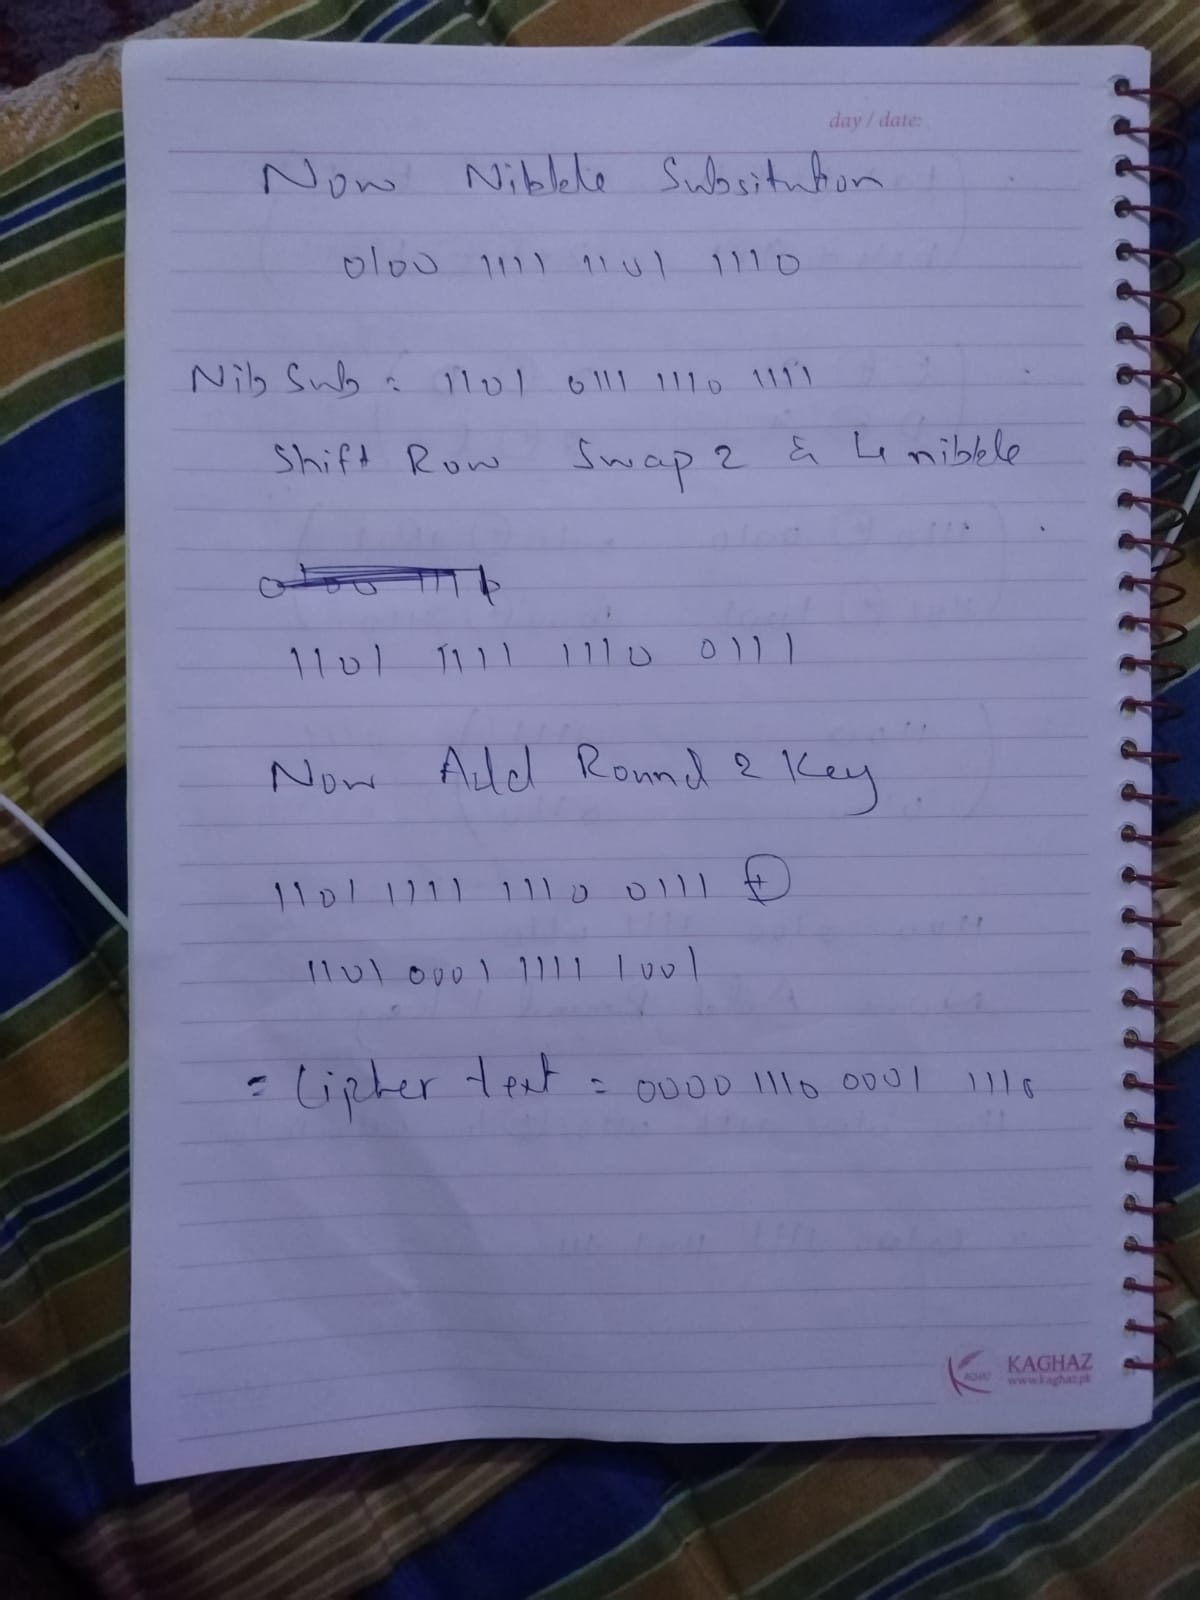 day / date:
Now Nibble Subsitution
0100 1111 1101 1110
Nib Sub = 1101 0111 1110 1111
Shift Row Swap 2 & 4 nibble
1101 1111 1110 0111
Now Add Round 2 Key
1101 1111 1110 0111 ⊕
1101 0001 1111 1001
= Cipher text = 0000 1110 0001 1110
KAGHAZ
www.kaghaz.pk